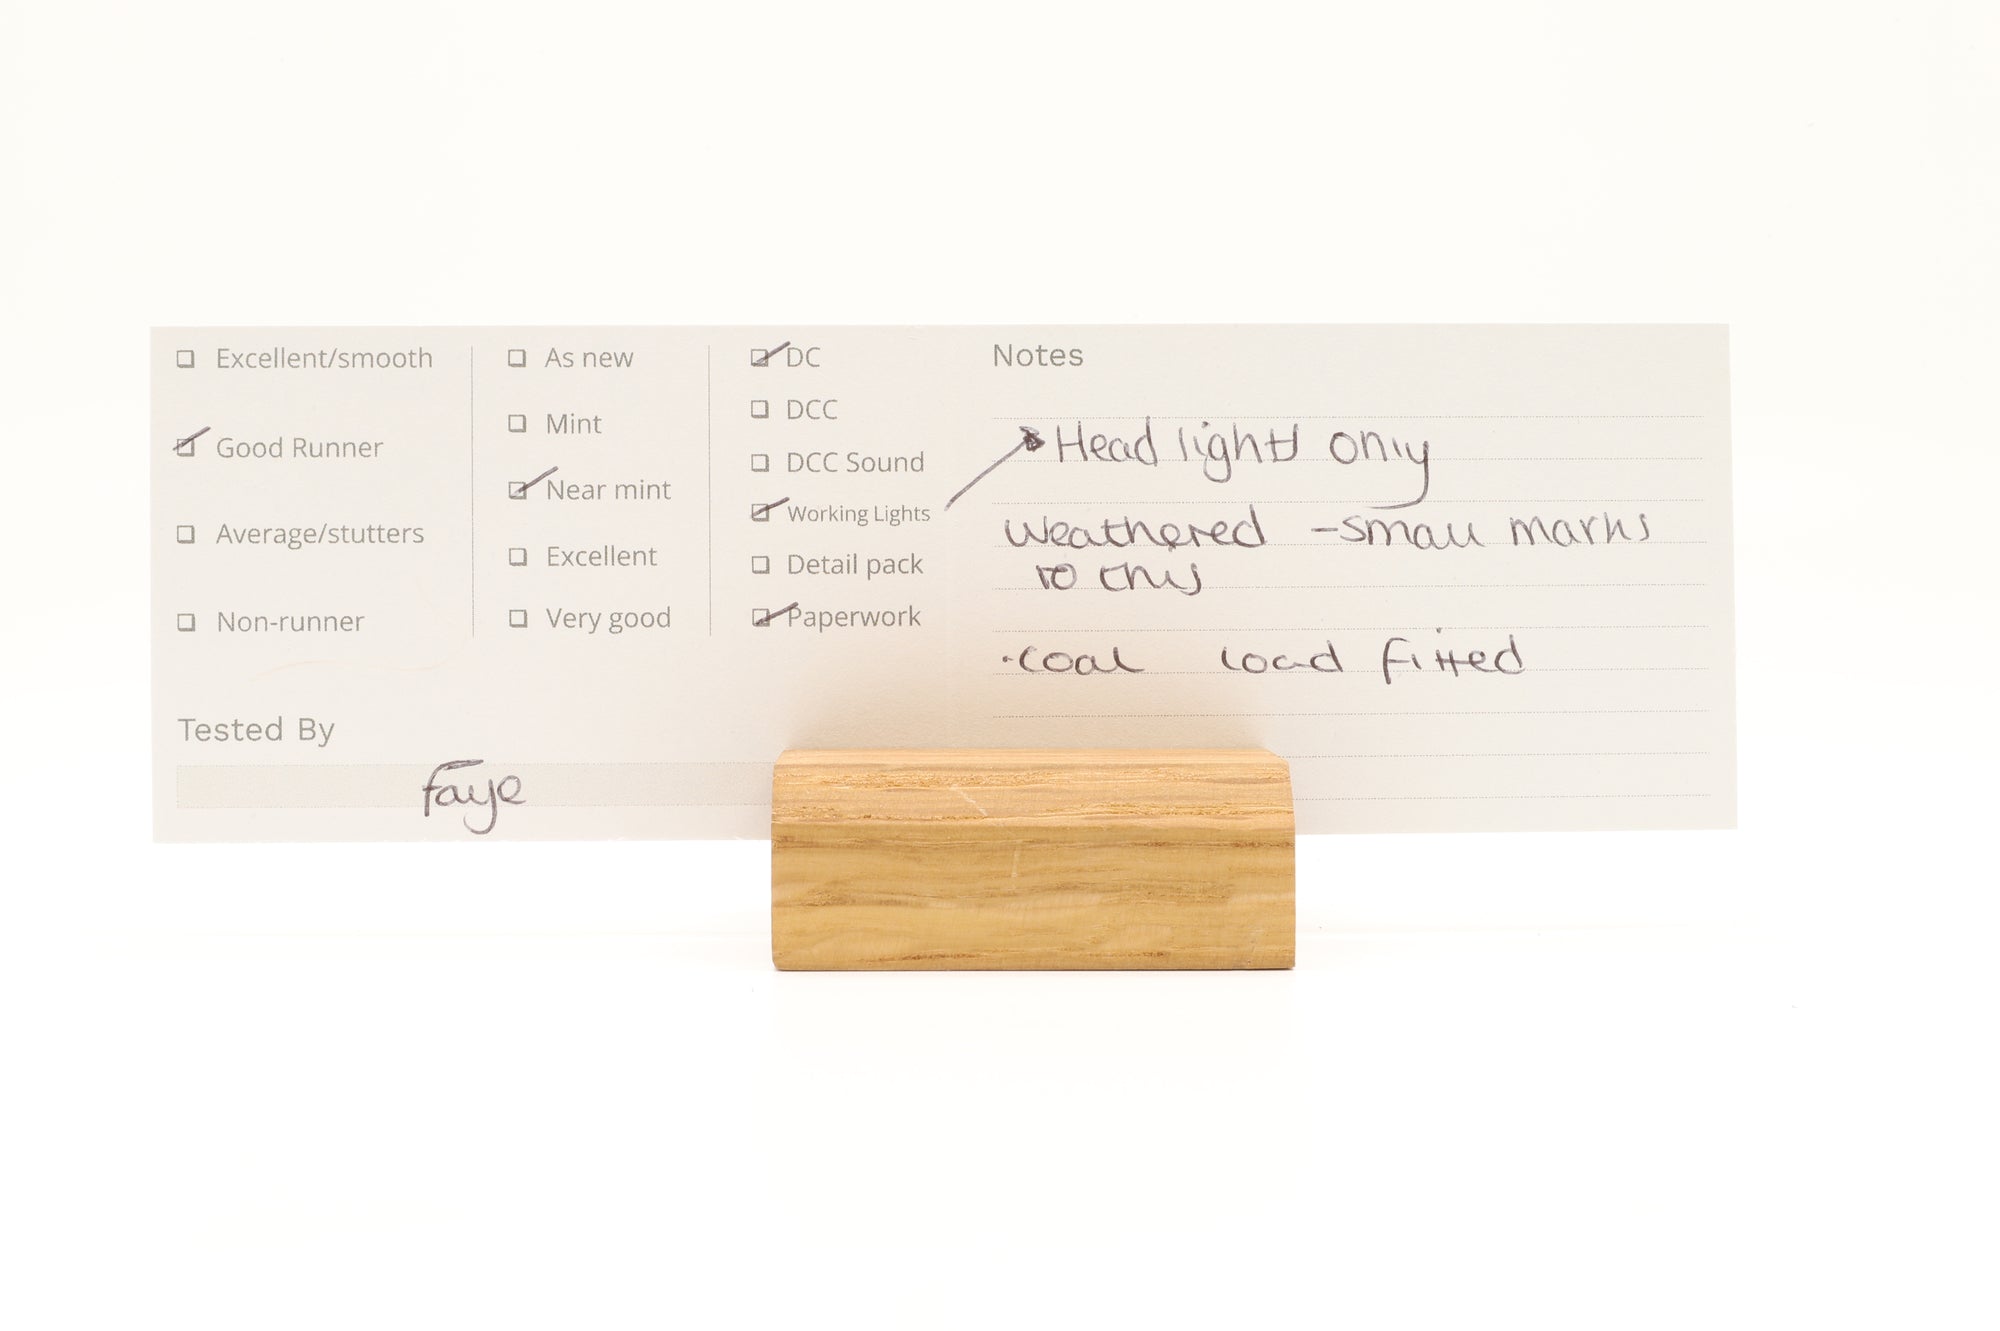 Excellent/smooth
Good Runner
Average/stutters
Non-runner
As new
Mint
Near mint
Excellent
Very good
DC
DCC
DCC Sound
Working Lights
Detail pack
Paperwork
Tested By
Faye
Notes
Head lights only
weathered - small marks
to this
· coal load fitted